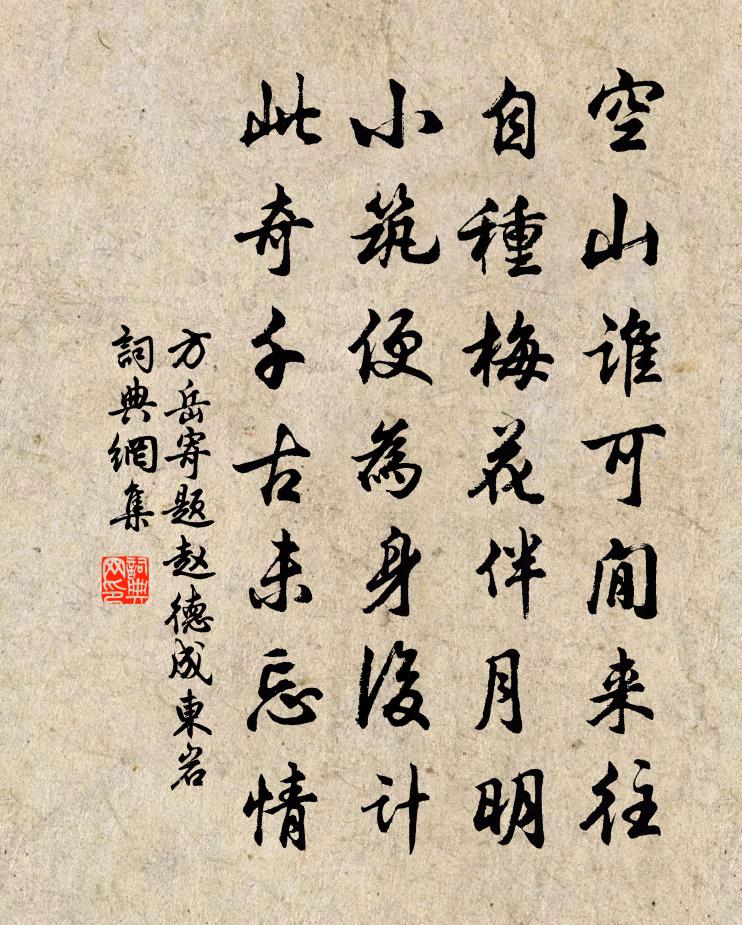 空山谁可閒来往
自種梅花伴月明
小筑便為身後计
此奇千古未忘情
方岳寄题赵德成東岩
詞典網集
詞典
网印